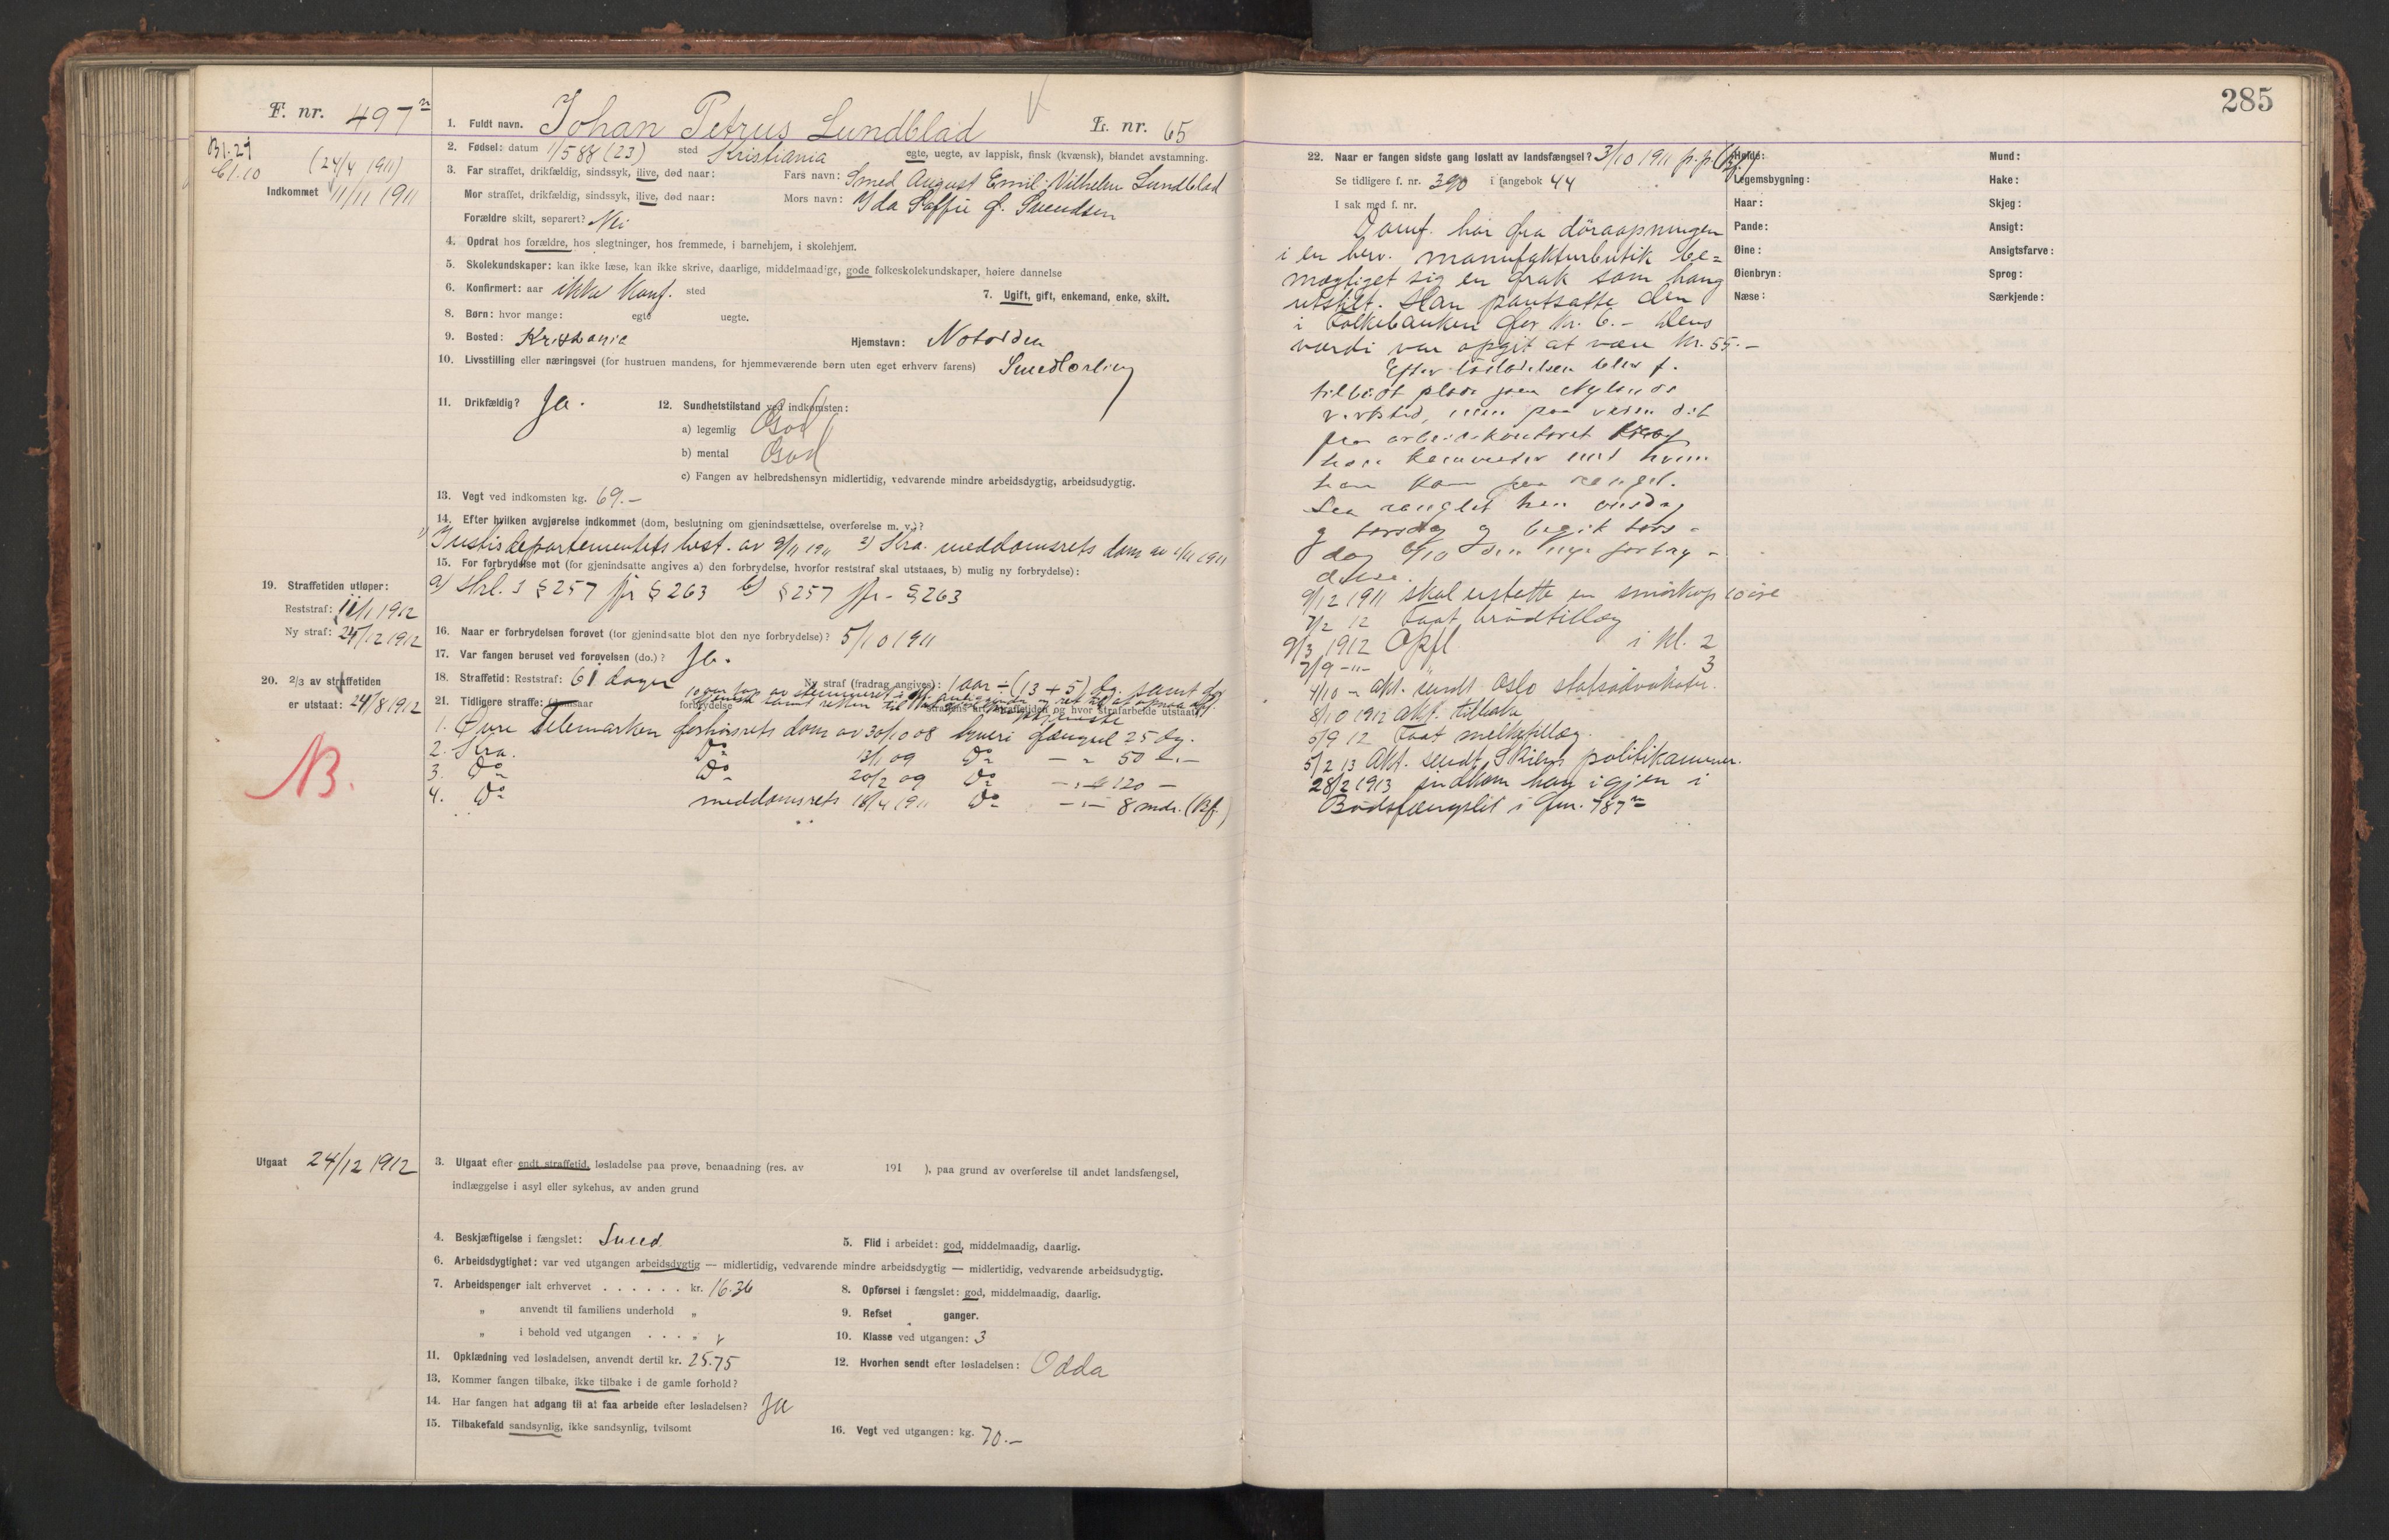 F. nr. 497
Bl. 29
Cl. 10
(24/4 1911)
Indkommet 11/11 1911
1. Fuldt navn. Johan Petrus Lundblad
L. nr. 65
2. Fødsel: datum 1/5 88 (23) sted Kristiania egte, uegte, av lappisk, finsk (kvænsk), blandet avstamning.
3. Far straffet, drikfældig, sindssyk, ilive, død naar: Fars navn: Smed August Emil Vilhelm Lundblad
Mor straffet, drikfældig, sindssyk, ilive, død naar: Mors navn: Ida Soffie f. Svendsen
Forældre skilt, separert? Nei
4. Opdrat hos forældre, hos slegtninger, hos fremmede, i barnehjem, i skolehjem.
5. Skolekundskaper: kan ikke læse, kan ikke skrive, daarlige, middelmaadige, gode folkeskolekundskaper, høiere dannelse
6. Konfirmert: aar ikke konf. sted
7. Ugift, gift, enkemand, enke, skilt.
8. Børn: hvor mange: egte uegte.
9. Bosted: Kristiania Hjemstavn: Notodden
10. Livsstilling eller næringsvei (for hustruen mandens, for hjemmeværende børn uten eget erhverv farens) Smedlærling
11. Drikfældig? Ja.
12. Sundhetstilstand ved indkomsten:
a) legemlig God
b) mental God
c) Fangen av helbredshensyn midlertidig, vedvarende mindre arbeidsdygtig, arbeidsudygtig.
13. Vegt ved indkomsten kg. 69.—
14. Efter hvilken avgjørelse indkommet (dom, beslutning om gjenindsættelse, overførelse m. v.)?
1) Justisdepartementets best. av 9/11 1911 2) Kra. meddomsrets dom av 1/11 1911
15. For forbrydelse mot (for gjenindsatte angives a) den forbrydelse, hvorfor reststraf skal utstaaes, b) mulig ny forbrydelse):
a) Strl. s § 257 jfr § 263 b) § 257 jfr. § 263
19. Straffetiden utløper:
Reststraf: 11/1 1912
Ny straf: 24/12 1912
16. Naar er forbrydelsen forøvet (for gjenindsatte blot den nye forbrydelse)? 5/10 1911
17. Var fangen beruset ved forøvelsen (do.)? Ja.
18. Straffetid: Reststraf: 61 dager Ny straf (fradrag angives): 1 aar ÷ (13 + 5) dg. samt
20. 2/3 av straffetiden
er utstaat: 24/8 1912
21. Tidligere straffe:
1. Øvre Telemarken forhørsrets dom av 30/10 08 tyveri fængsel 25 dg.
2. Kra. Do 13/1 09 Do — " 50 " —
3. Do Do 20/2 09 Do — " 120 —
4. Do meddomsrets 18/4 1911 Do — " — 8 mdr. (Bf.)
NB.
Utgaat 24/12 1912
3. Utgaat efter endt straffetid, løsladelse paa prøve, benaadning (res. av 191 ), paa grund av overførelse til andet landsfængsel,
indlæggelse i asyl eller sykehus, av anden grund
4. Beskjæftigelse i fængslet: Smed
5. Flid i arbeidet: god, middelmaadig, daarlig.
6. Arbeidsdygtighet: var ved utgangen arbeidsdygtig — midlertidig, vedvarende mindre arbeidsdygtig — midlertidig, vedvarende arbeidsudygtig.
7. Arbeidspenger ialt erhvervet . . . . . . kr. 16.36
8. Opførsel i fængslet: god, middelmaadig, daarlig.
" anvendt til familiens underhold "
9. Refset " ganger.
" i behold ved utgangen . . . "
10. Klasse ved utgangen: 3
11. Opklædning ved løsladelsen, anvendt dertil kr. 25.75
12. Hvorhen sendt efter løsladelsen: Odda
13. Kommer fangen tilbake, ikke tilbake i de gamle forhold?
14. Har fangen hat adgang til at faa arbeide efter løsladelsen? Ja
15. Tilbakefald sandsynlig, ikke sandsynlig, tvilsomt
16. Vegt ved utgangen: kg. 70.—
285
22. Naar er fangen sidste gang løslatt av landsfængsel? 3/10 1911 p. p. (Bf.)
Se tidligere f. nr. 390 i fangebok 44
I sak med f. nr.
Domf. har fra døraapningen
i en herv. manufakturbutik be=
mægtiget sig en frak som hang
utstilt. Han pantsatte den
i Folkebanken for kr. 6.— Dens
værdi var opgit at være kr. 55.—
Efter løsladelsen blev f.
tilbudt plads paa Nylands
verksted, men paa veien dit
fra arbeidskontoret
han kamerater med hvem
han kom paa rangel.
han onsdag
og torsdag og begik tors-
dag 5/10 den nye forbry-
delse.
9/12 1911 skal erstatte en smørkop 10 øre
7/2 12 Faat brødtillæg
9/3 1912 Opfl. i kl. 2
7/9 —"— 3
4/10 " Akt. sendt Oslo statsadvokater.
8/10 1912 Akt. tilbake
5/9 12 Faat melketillæg.
5/2 13 Akt. sendt Skiens politikammer.
28/2 1913 indkom han igjen i
Bodsfængslet i fnr. 787
Høide:
Legemsbygning:
Haar:
Pande:
Øine:
Øienbryn:
Næse:
Mund:
Hake:
Skjeg:
Ansigt:
Ansigtsfarve:
Sprog:
Særkjende: